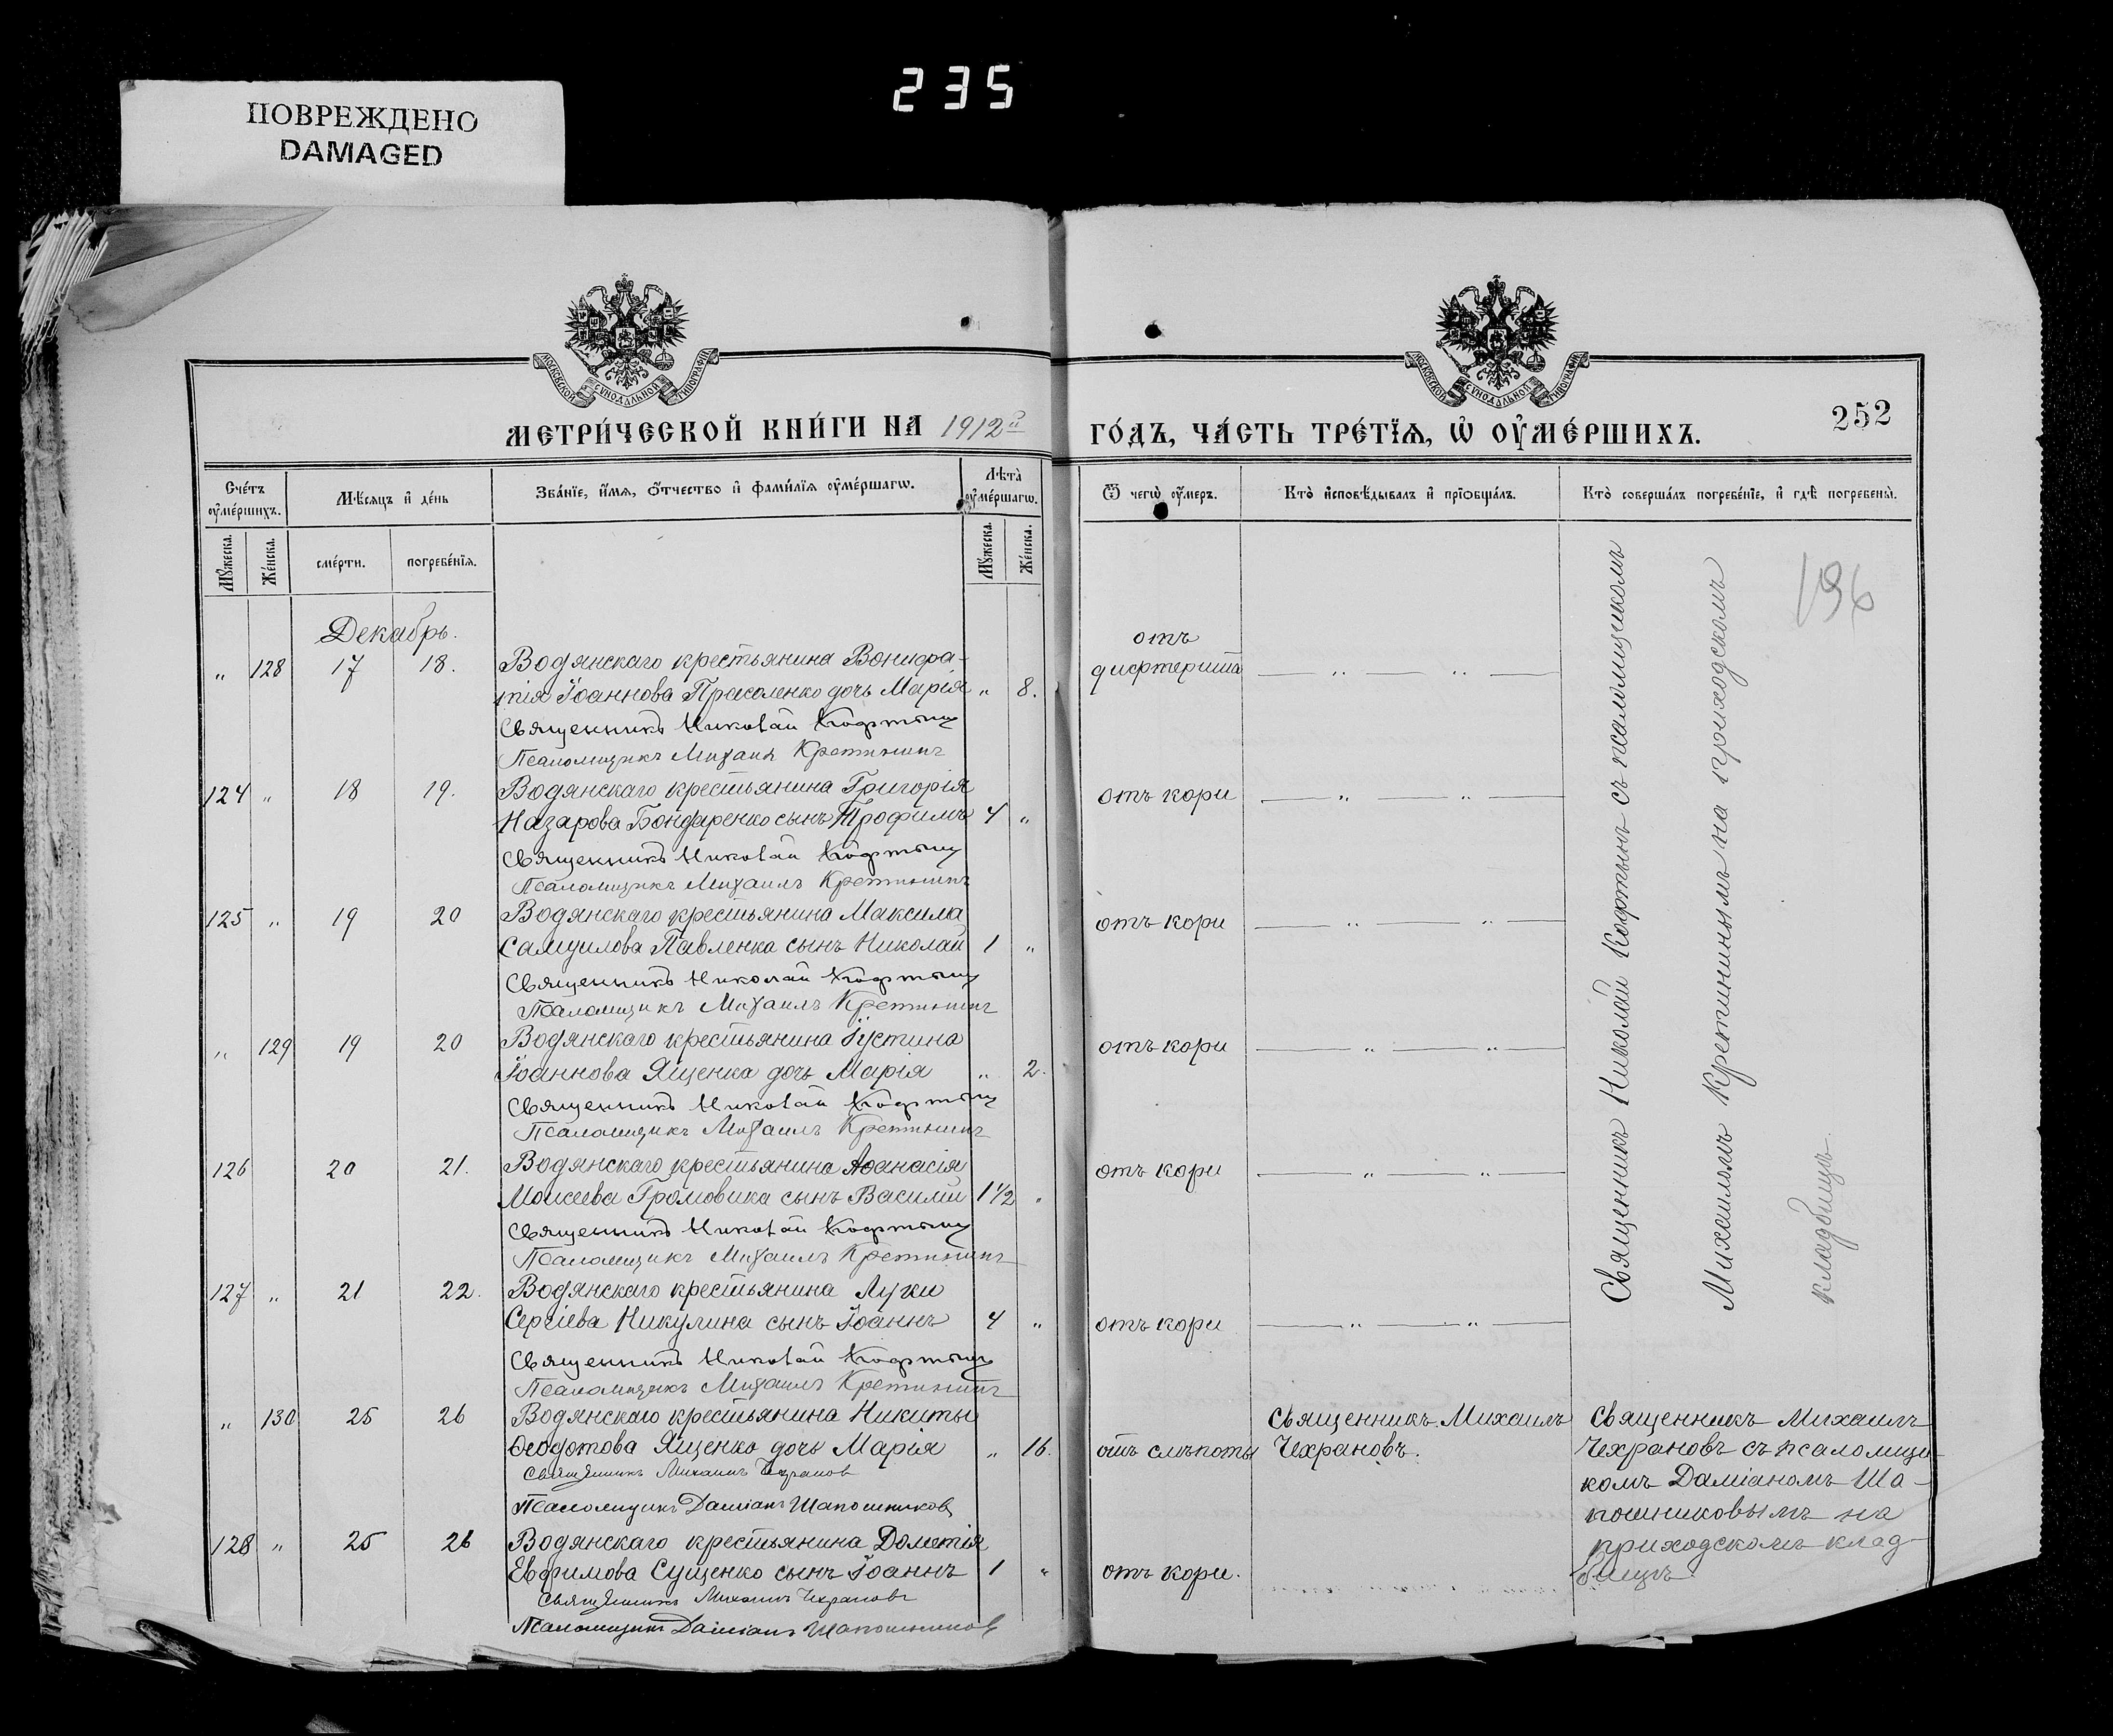 235
ПОВРЕЖДЕНО
DAMAGED
МЕТРИ́ЧЕСКОЙ КНИ́ГИ НА 1912й ГО́ДЪ, ЧА́СТЬ ТРЕ́ТІѦ, Ѡ҆ ОУ҆МЕ́РШИХЪ.
252
Счетъ оумершихъ.
Мѣсяцъ и день
Званіе, имя, отчество и фамилія оумершагѡ.
Лѣта оумершагѡ.
Ѿ чегѡ оумеръ.
Кто исповѣдывалъ и пріобщалъ.
Кто совершалъ погребеніе, и гдѣ погребены.
Мужеска.
Женска.
смерти.
погребенія.
Мужеска.
Женска.
196
Декабрь.
„ 128 17 18. Водянскаго крестьянина Вонифа-
тія Іоаннова Прасоленко дочь Марія „ 8.
отъ
дифтерита
Священникъ Николай Кофтынъ
Псаломщикъ Михаилъ Кретининъ
124 „ 18 19. Водянскаго крестьянина Григорія
Назарова Бондаренко сынъ Трофимъ 4 „ отъ кори
Священникъ Николай Кофтынъ
Псаломщикъ Михаилъ Кретининъ
125 „ 19 20 Водянскаго крестьянина Максима
Самуилова Павленка сынъ Николай 1 „ отъ кори
Священникъ Николай Кофтынъ
Псаломщикъ Михаилъ Кретининъ
„ 129 19 20 Водянскаго крестьянина Іустина
Іоаннова Ященка дочь Марія „ 2. отъ кори
Священникъ Николай Кофтынъ
Псаломщикъ Михаилъ Кретининъ
126 20 21. Водянскаго крестьянина Аѳанасія
Моисеева Громовика сынъ Василій 1 1/2 „ отъ кори
Священникъ Николай Кофтынъ
Псаломщикъ Михаилъ Кретининъ
127 „ 21 22. Водянскаго крестьянина Луки
Сергіева Никулина сынъ Іоаннъ 4 „ отъ кори
Священникъ Николай Кофтынъ
Псаломщикъ Михаилъ Кретининъ
Священникъ Николай Кофтынъ съ псаломщикомъ
Михаиломъ Кретининымъ на приходскомъ
кладбищѣ.
„ 130 25 26 Водянскаго крестьянина Никиты
Ѳеодотова Ященко дочь Марія „ 16. отъ слѣпоты
Священникъ Михаилъ
Чехрановъ.
Священникъ Михаилъ
Чехрановъ съ псаломщи-
комъ Даміаномъ Ша-
пошниковымъ на
приходскомъ клад-
бищѣ.
Священникъ Михаилъ Чехрановъ
Псаломщикъ Даміанъ Шапошниковъ
128 „ 25 26 Водянскаго крестьянина Дометія
Евфимова Сущенко сынъ Іоаннъ 1 „ отъ кори.
Священникъ Михаилъ Чехрановъ
Псаломщикъ Даміанъ Шапошниковъ